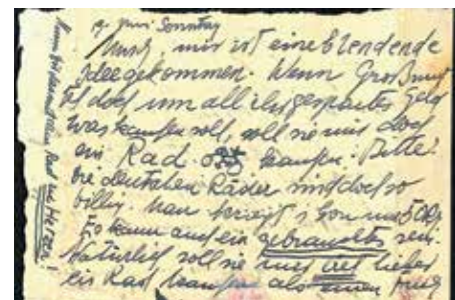 9. Juni Sonntag
Musch, mir ist eine blendende
Idee gekommen. Wenn Großmutti
doch um all ihr gespartes Geld
was kaufen soll, soll sie mir doch
ein Rad kaufen. Bitte!
die deutschen Räder sind doch so
billig. Man kriegt schon um
Es kann auch ein gebrauchtes sein.
Natürlich soll sie mir viel lieber
ein Rad kaufen als einen